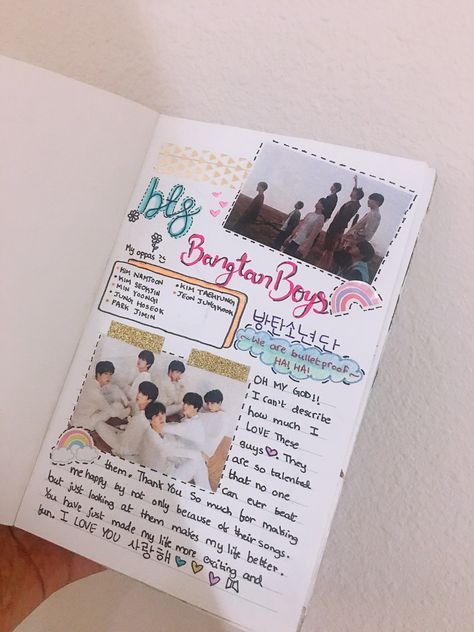 bts
Bangtan Boys
My oppas
• KIM NAMJOON
• KIM SEOKJIN
• MIN YOONGI
• JUNG HOSEOK
• PARK JIMIN
• KIM TAEHYUNG
• JEON JUNGKOOK
방탄소년단
~We are bulletproof~
HA! HA!
OH MY GOD!!
I can't describe
how much I
LOVE These
guys. They
are so talented
that no one
can ever beat
them. Thank You so much for making
me happy by not only because of their songs.
but just looking at them makes my life better.
You have just made my life more exciting and
fun. I LOVE YOU 사랑해